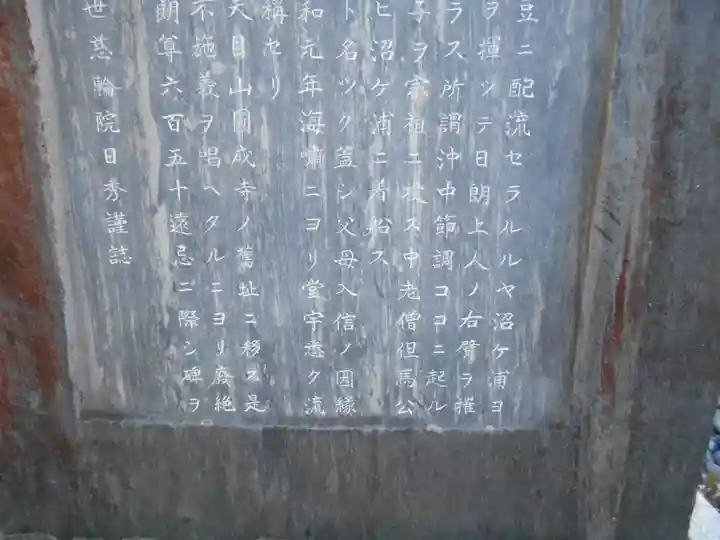 豆ニ配流セラルルヤ沼ケ浦ヨ
ヲ揮ツテ日朗上人ノ右臂ヲ摧
ラス所謂沖中節調ココニ起ル
子ヲ宗祖ニ投ス中老僧但馬公
ヒ沼ケ浦ニ着船ス
ト名ツク蓋シ父母入信ノ因縁
和元年海嘯ニヨリ堂宇悉ク流
稱セリ
天目山圓成寺ノ舊址ニ移ス是
不施義ヲ唱ヘタルニヨリ廢絶
朗尊六百五十遠忌ニ際シ碑ヲ
世慈輪院日秀謹誌